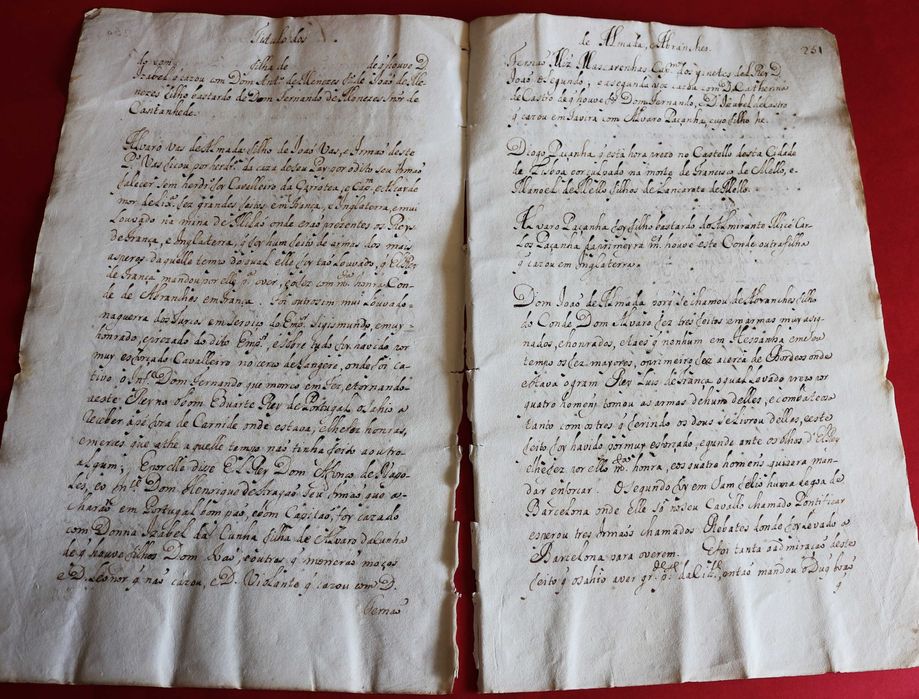 Titulo dos
do vem filha de de q̃ houve D.
Izabel q̃ cazou com Dom Antᵒ de Menezes fᵒ de João de Me-
nezes filho bastardo de Dom Fernando de Menezes Snr̃ de
Cantanhede.
Alvaro Vas de Almada filho de João Vas, e Irmaõ deste
Pᵒ Vas ficou por herdrᵒ da caza de seu Pay por o dito seu Irmaõ
falecer sem herdrᵒ foi Cavaleiro da Garotea, e Capᵐ, e Alcayde
mor de Lixᵃ fez grandes feitos em França, e Inglaterra, e mui
Louvado na mina de onde eraõ presentes os Reys
de França, e Inglaterra, q̃ foy hum feito de armas dos mais
asperos daquelle tempo do qual elle foy taõ Louvado, q̃ El Rey
de França mandou por elle pᵒ o ver, e o fez com mᵗᵃ honra Con-
de de Abranches em França. Foi outrosim mui Louvado
na guerra dos Turcos em serviço do Empᵒʳ Sigismundo, e muy
honrado, e prezado do dito Empᵒʳ, e sobre tudo foy havido por
muy esforçado Cavalleiro no cerco de Tangere, onde foi ca-
tivo o Infᵗᵉ Dom Fernando que morreo em Fez, e tornando
a este Reyno o bom Eduarte Rey de Portugal o sahio a
receber apé fora de Carnide onde estava, e lhe fez honras,
e mercés que athe aquelle tempo naõ tinha feito ao utro
algum; E por elle dice El Rey Dom Afonço de Napo-
les, e o Infᵗᵉ Dom Henrique de Aragaõ seu Irmaõ que a-
charaõ em Portugal bom paõ, e bom Capitaõ, foy cazado
com Donna Izabel da Cunha filha de Alvaro da Cunha
de q̃ houve filhos Dom Ioaõ, e outros q̃ morreraõ moços
e D. Leonor q̃ naõ cazou, e D. Violante q̃ cazou com D.
Fernaõ
de Almada, e Abranches.
251
Fernaõ Miz Mascarenhas Capᵐ dos ginetes del Rey D.
Joaõ o Segundo, e a segunda vez cazou com D. Catherina
de Castro de q̃ houve Dom Fernando, e D. Izabel de Castro
q̃ cazou em Tavira com Alvaro Paçanha, cujo filho he
Diogo Paçanha q̃ está hora prezo no Castello desta Cidade
de Lisboa por culpado na morte de Francisco de Mello, e
Manoel de Mello filhos de Lançarote de Mello.
Alvaro Paçanha foy filho bastardo do Almirante Micé Car-
los Paçanha da primeyra mᵉʳ houve este Conde outra filha
q̃ cazou em Inglaterra.
Dom Joaõ de Almada porq̃ se chamou de Abranches filho
do Conde Dom Alvaro fez tres feitos em armas muy asig-
nados, e honrados, e taes q̃ nenhum em Hespanha em seu
tempo os fez mayores, o primeiro fez acerca de Bordeos onde
estava o gram Rey Luis de França o qual Levado prezo por
quatro homens tomou as armas de hum delles, e combateo
tanto com o tres q̃ ferindo os dous se Livrou delles, e este
feito foy havido por muy esforçado, e grande ante os olhos d'El Rey
e lhe fez por elle mᵗᵃ honra, e os quatro homens quizera man-
dar enforcar. O segundo foy em Sam feliu huma Legoa de
Barcelona onde elle só no seu Cavalo chamado Pontificar
esperou tres Irmaõs chamados Rebates donde foy Levado a
Barcelona para o verem. E foi tanta a admiraçaõ deste
feito q̃ o sahio a ver grᵈᵉ pᵗᵉ da Cidᵉ, entaõ mandou o Duq̃ Joaõ
q̃